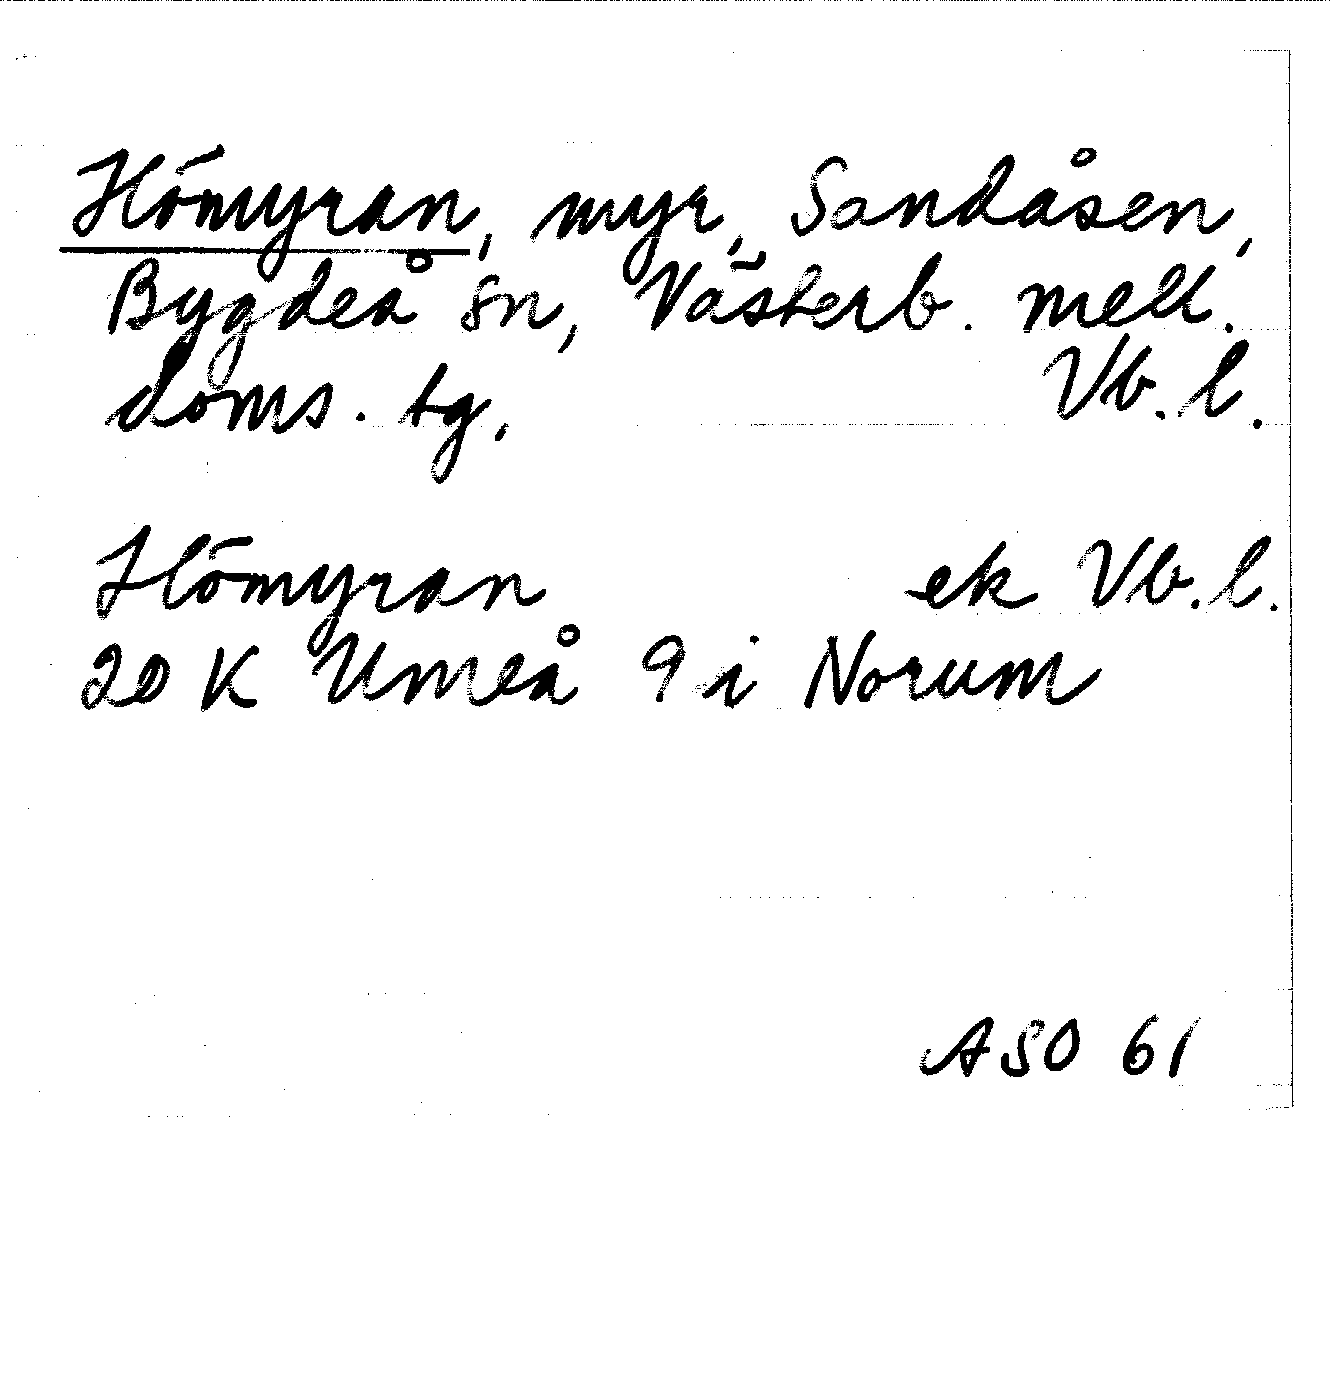 Hömyran, myr, Sandåsen,
Bygdeå sn, Västerb. mell.
doms. tg, Vb. l.
Hömyran ek Vb. l.
20 K Umeå 9 i Norum
ASO 61